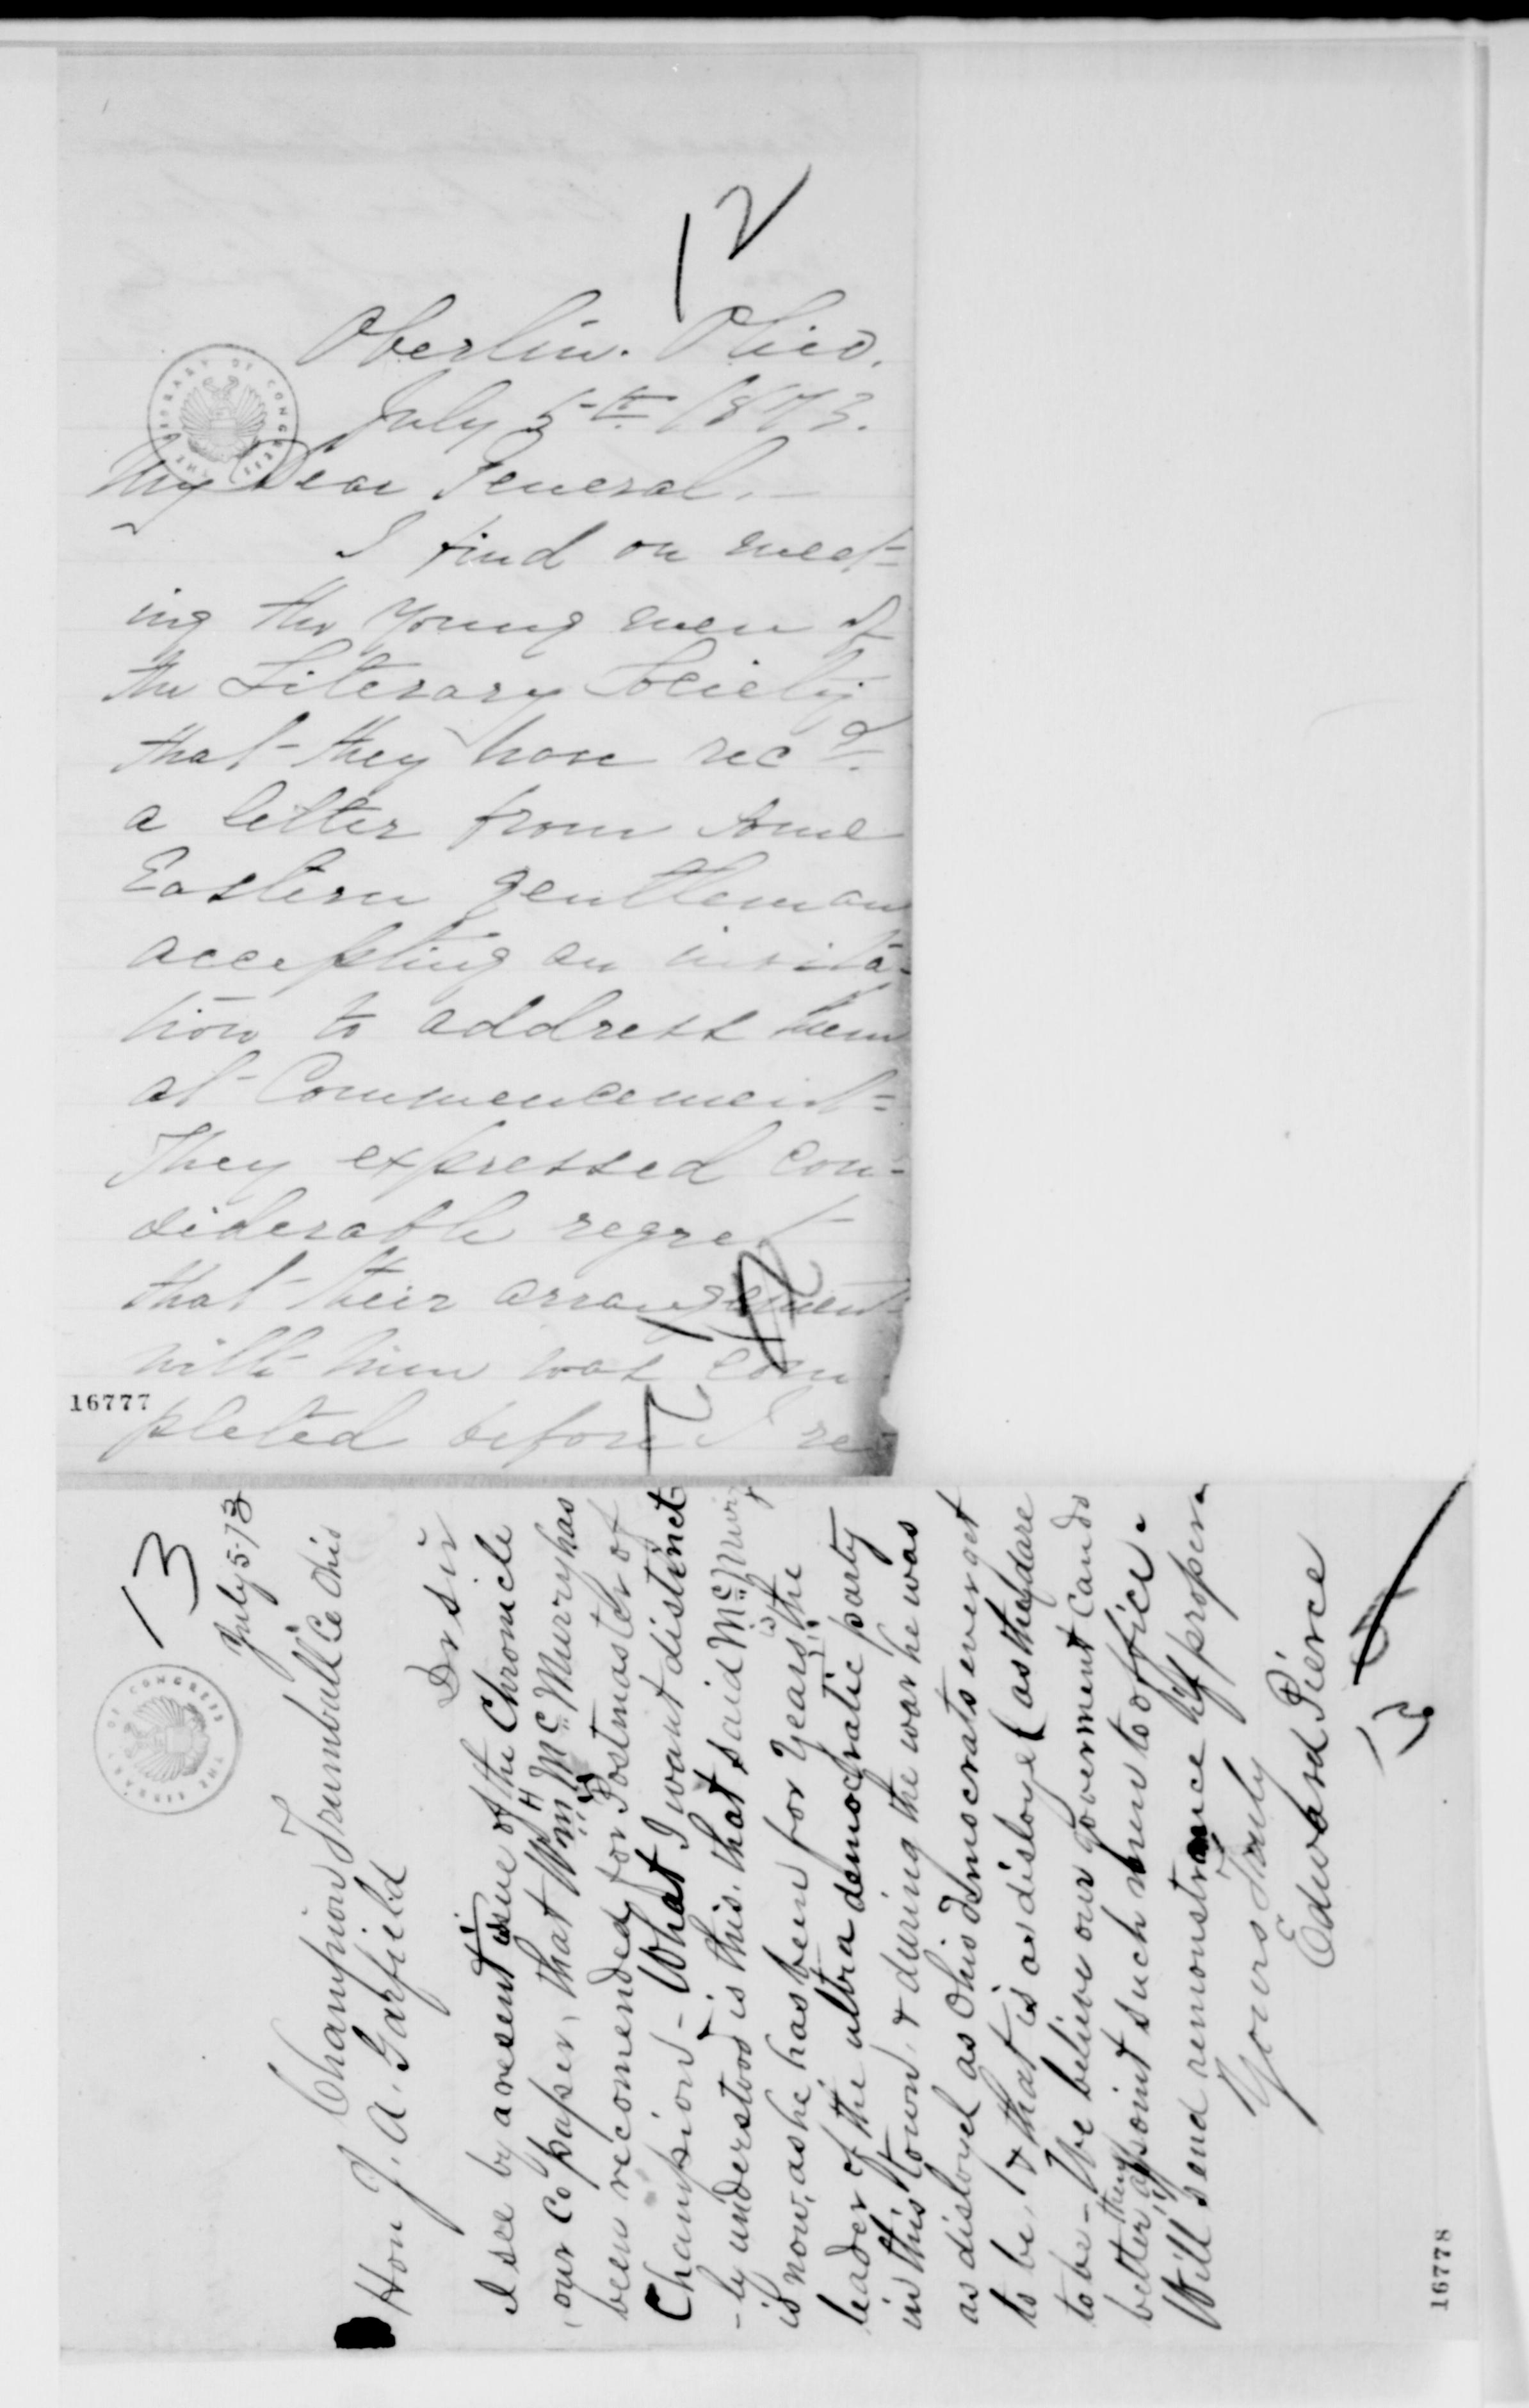 12
Oberlin. Ohio.
July 5th. 1873.
My Dear General.
I find on meet-
ing the young men of
the Literary Society
that they have recd.
a letter from some
Eastern gentleman
accepting an invita-
tion to address them
at Commencement-
They expressed con-
siderable regret
that their arrangement
with him was com-
pleted before I re-
12
16777
LIBRARY OF CONGRESS
13
July 5-73
Champion Trumbull Co Ohio
Hon J. A. Garfield
Dr sir
I see by a resent issue of the Chronicle
our Co paper, that Wm H McMurry has
been recomended for Postmaster of
Champion - What I want distinct
-ly understood is this. that said McMurry
is now, as he has been for years, the
leader of the ultra democratic party
in this town, & during the war he was
as disloyel as Ohio democrats ever get
to be, & that is as disloyel as they dare
to be - We believe our goverment can do
better then appoint such men to office.
Will send remonstrance if proper.
Yours Truly
Edward Pierce
13
16778
LIBRARY OF CONGRESS